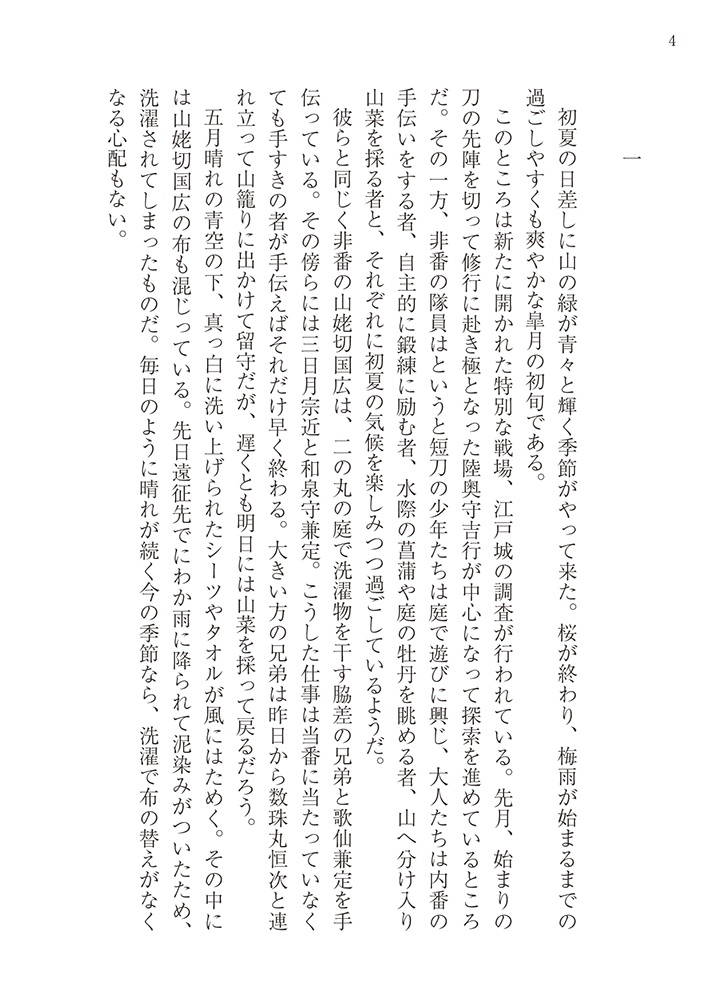 4
一
初夏の日差しに山の緑が青々と輝く季節がやって来た。桜が終わり、梅雨が始まるまでの
過ごしやすくも爽やかな皐月の初旬である。
このところは新たに開かれた特別な戦場、江戸城の調査が行われている。先月、始まりの
刀の先陣を切って修行に赴き極となった陸奥守吉行が中心になって探索を進めているところ
だ。その一方、非番の隊員はというと短刀の少年たちは庭で遊びに興じ、大人たちは内番の
手伝いをする者、自主的に鍛練に励む者、水際の菖蒲や庭の牡丹を眺める者、山へ分け入り
山菜を採る者と、それぞれに初夏の気候を楽しみつつ過ごしているようだ。
彼らと同じく非番の山姥切国広は、二の丸の庭で洗濯物を干す脇差の兄弟と歌仙兼定を手
伝っている。その傍らには三日月宗近と和泉守兼定。こうした仕事は当番に当たっていなく
ても手すきの者が手伝えばそれだけ早く終わる。大きい方の兄弟は昨日から数珠丸恒次と連
れ立って山籠りに出かけて留守だが、遅くとも明日には山菜を採って戻るだろう。
五月晴れの青空の下、真っ白に洗い上げられたシーツやタオルが風にはためく。その中に
は山姥切国広の布も混じっている。先日遠征先でにわか雨に降られて泥染みがついたため、
洗濯されてしまったものだ。毎日のように晴れが続く今の季節なら、洗濯で布の替えがなく
なる心配もない。